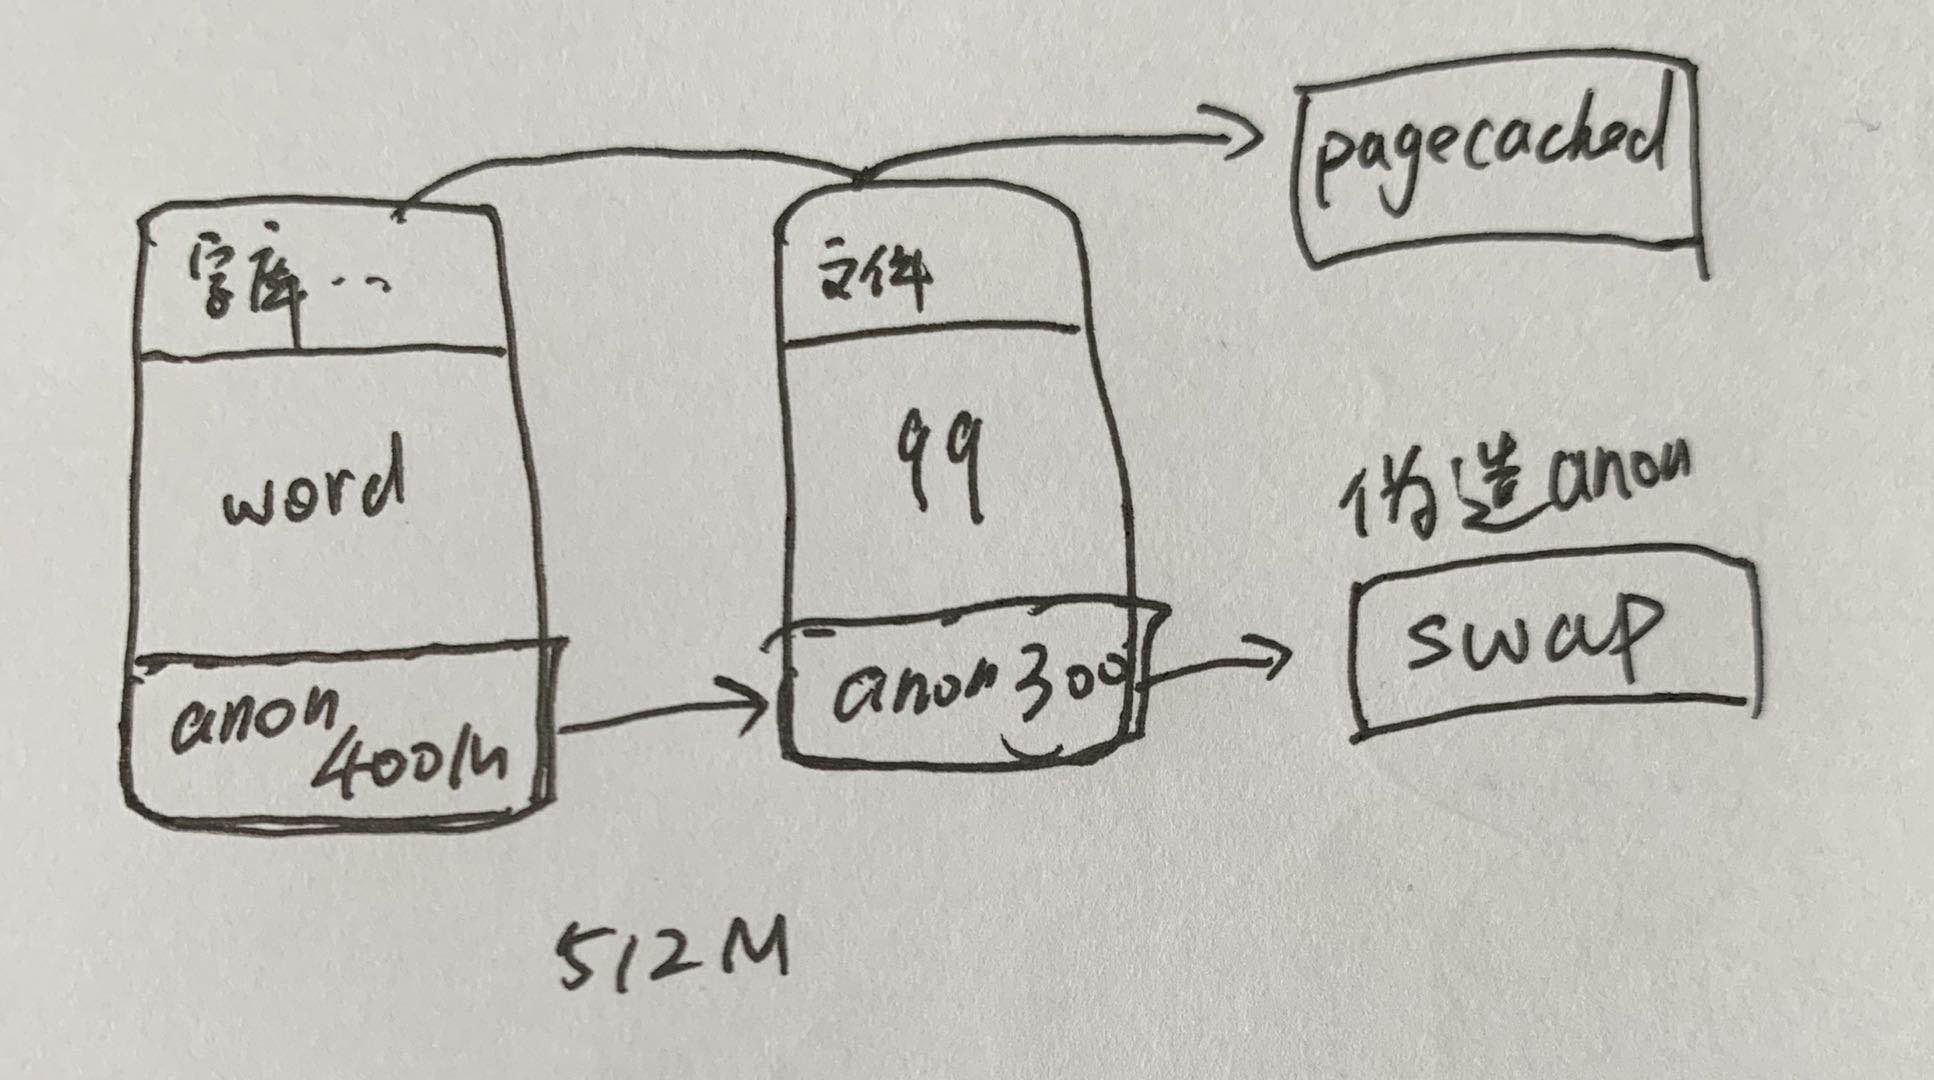 字库...
word
anon
400M
文件
qq
anon 300
pagecached
伪造anon
swap
512M